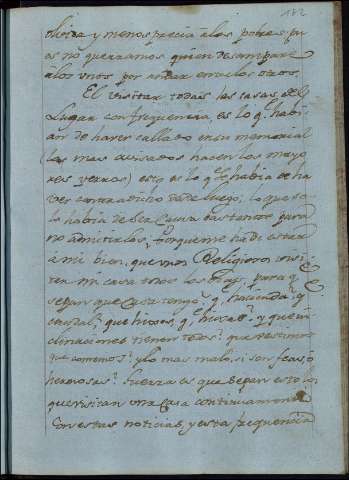 182
olvida y menos precia à los pobres, pu
es no queramos quien desampare
à los unos por andar en uelos otros.
El visitar todas las casas del
Lugar con frequencia, es lo q.e habi
an de haver callado en su memorial
(las mas avisados hacen los mayo
res yerros) esto es lo q.e habia de ha
ver contradicho desde luego, lo que so
lo habia de ser causa bastante para
no admitirlos. Porque me ha de estar
à mi bien, que unos Religiosos visi
ten mi casa todos los dias, para q.e
sepan que casa tengo? q.e hacienda? y
caudal? que hijos, q.e hijas? y que in
clinaciones tienen todos? que vestimos
que comemos? y lo mas malo, si son feas, ò
hermosas? Fuerza es que sepan esto los
que visitan una casa continuamente
Con estas noticias, y esta frequencia